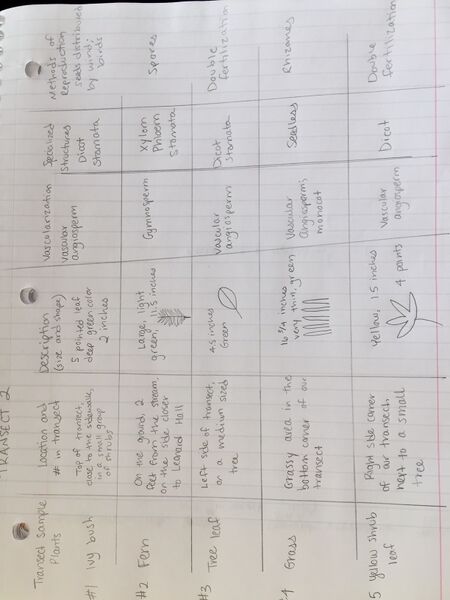 TRANSECT 2
Transect Sample
Plants
Location and
# in transect
Description
(size and shape)
Vascularization
Specialized
Structures
Methods of
Reproduction
#1 Ivy bush
Top of transect,
close to the sidewalk,
in a small group
of shrubs
5 pointed leaf
deep green color
2 inches
vascular
angiosperm
Dicot
Stomata
seeds distributed
by wind;
birds
#2 Fern
On the gound, 2
feet from the stream,
on the side closer
to Leonard Hall
Large, light
green, 11.5 inches
Gymnosperm
Xylem
Phloem
Stomata
Spores
#3 Tree leaf
Left side of transect,
on a medium sized
tree
4.5 inches
Green
Vascular
angiosperm
Dicot
stomata
Double
fertilization
#4 Grass
Grassy area in the
bottom corner of our
transect
16 3/4 inches
very thin, green
Vascular
Angiosperm;
monocot
Seedless
Rhizomes
5 yellow shrub
leaf
Right side corner
of our transect,
next to a small
tree
Yellow, 1.5 inches
4 points
Vascular
angiosperm
Dicot
Double
fertilization